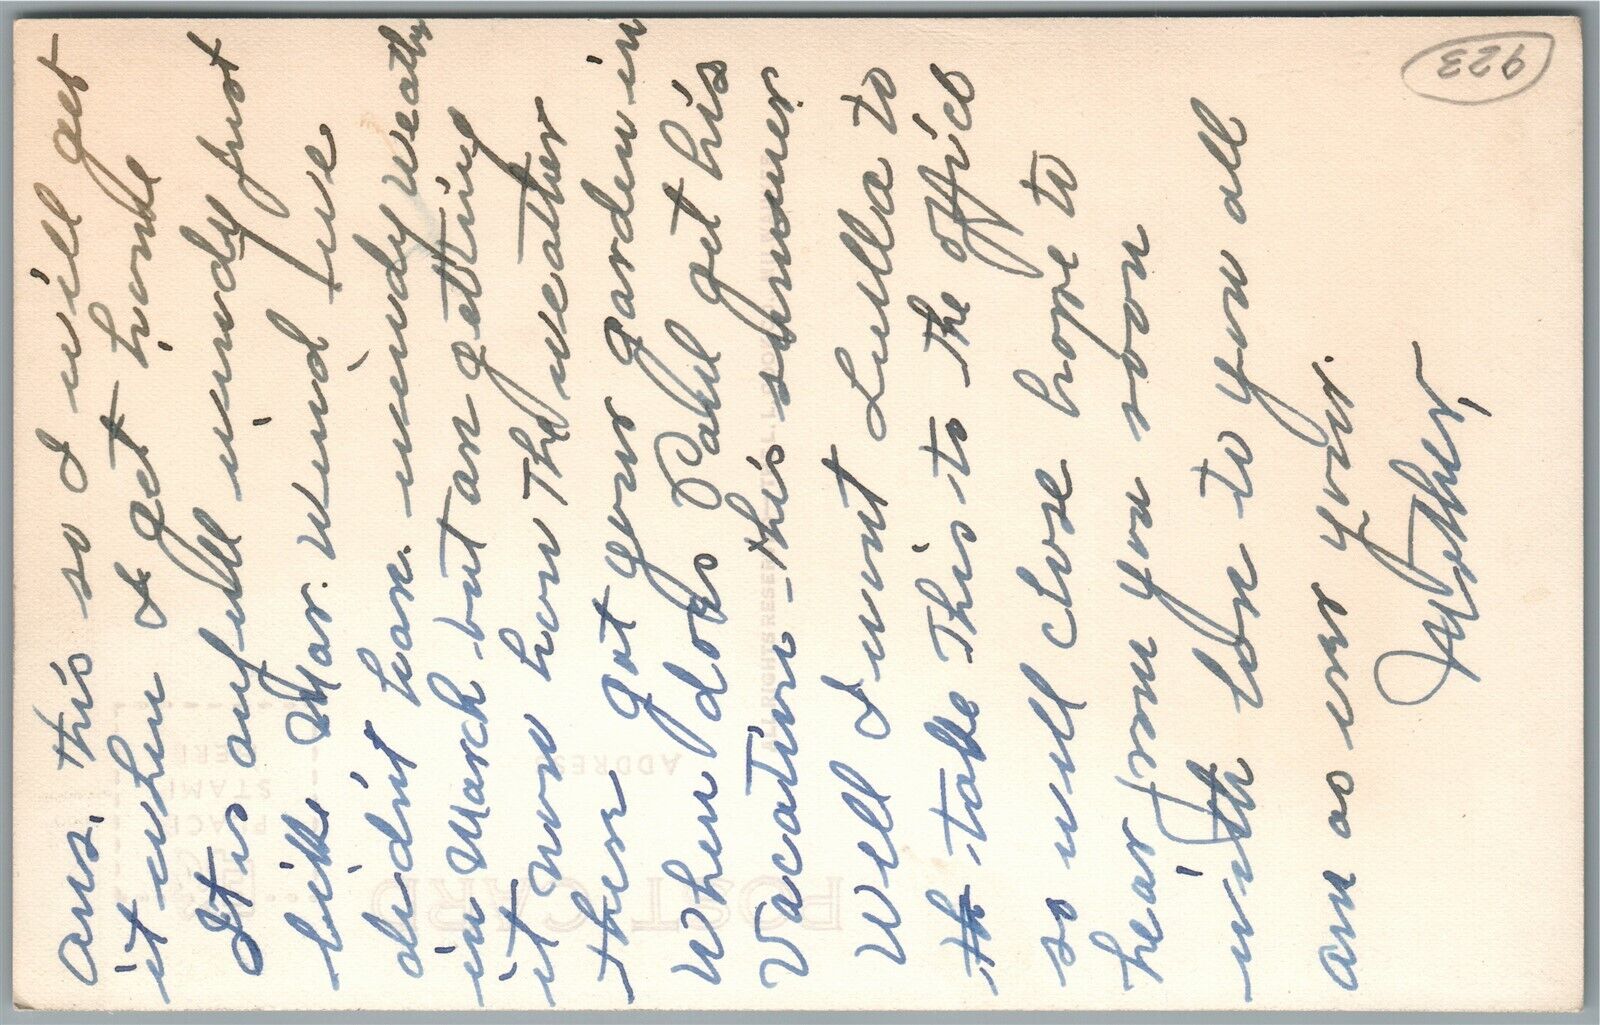 ans. this so I will get
it when I get home
It is awfull windy just
like Mar. wind we
didn't have windy weather
in March but am getting
it now how The weather
there got your garden in
When does Paul get his
Vacation - this summer
Well I want Lulla to
th take This to The office
so will close hope to
hear from you soon
with love to you all
and as ever your.
Mother,
923
POST CARD
ADDRESS
PLACE
STAMP
HERE